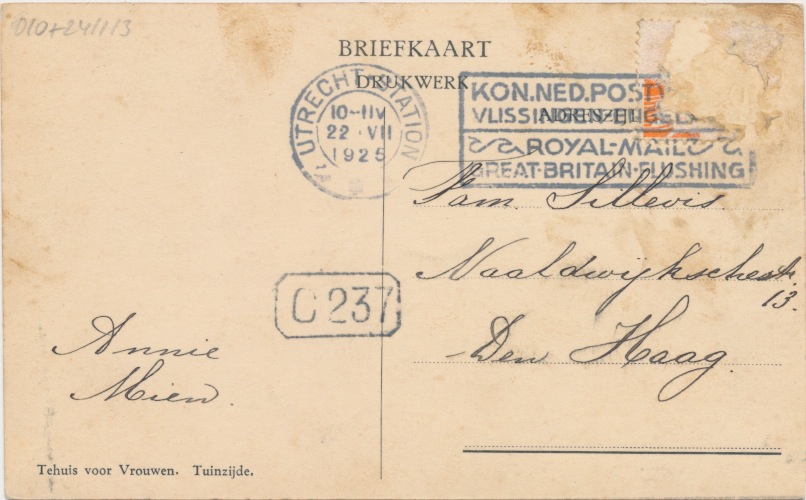 010+241113
BRIEFKAART
DRUKWERK
UTRECHT-STATION
10-11V
22 VII
1925
KON.NED.POST
VLISSINGEN-ENGEL
ADRESZIJDE
ROYAL-MAIL
GREAT-BRITAIN-FLUSHING
Fam. Sillevis
Naaldwijkschestr.
13.
Den Haag.
C 237
Annie
Mien.
Tehuis voor Vrouwen. Tuinzijde.